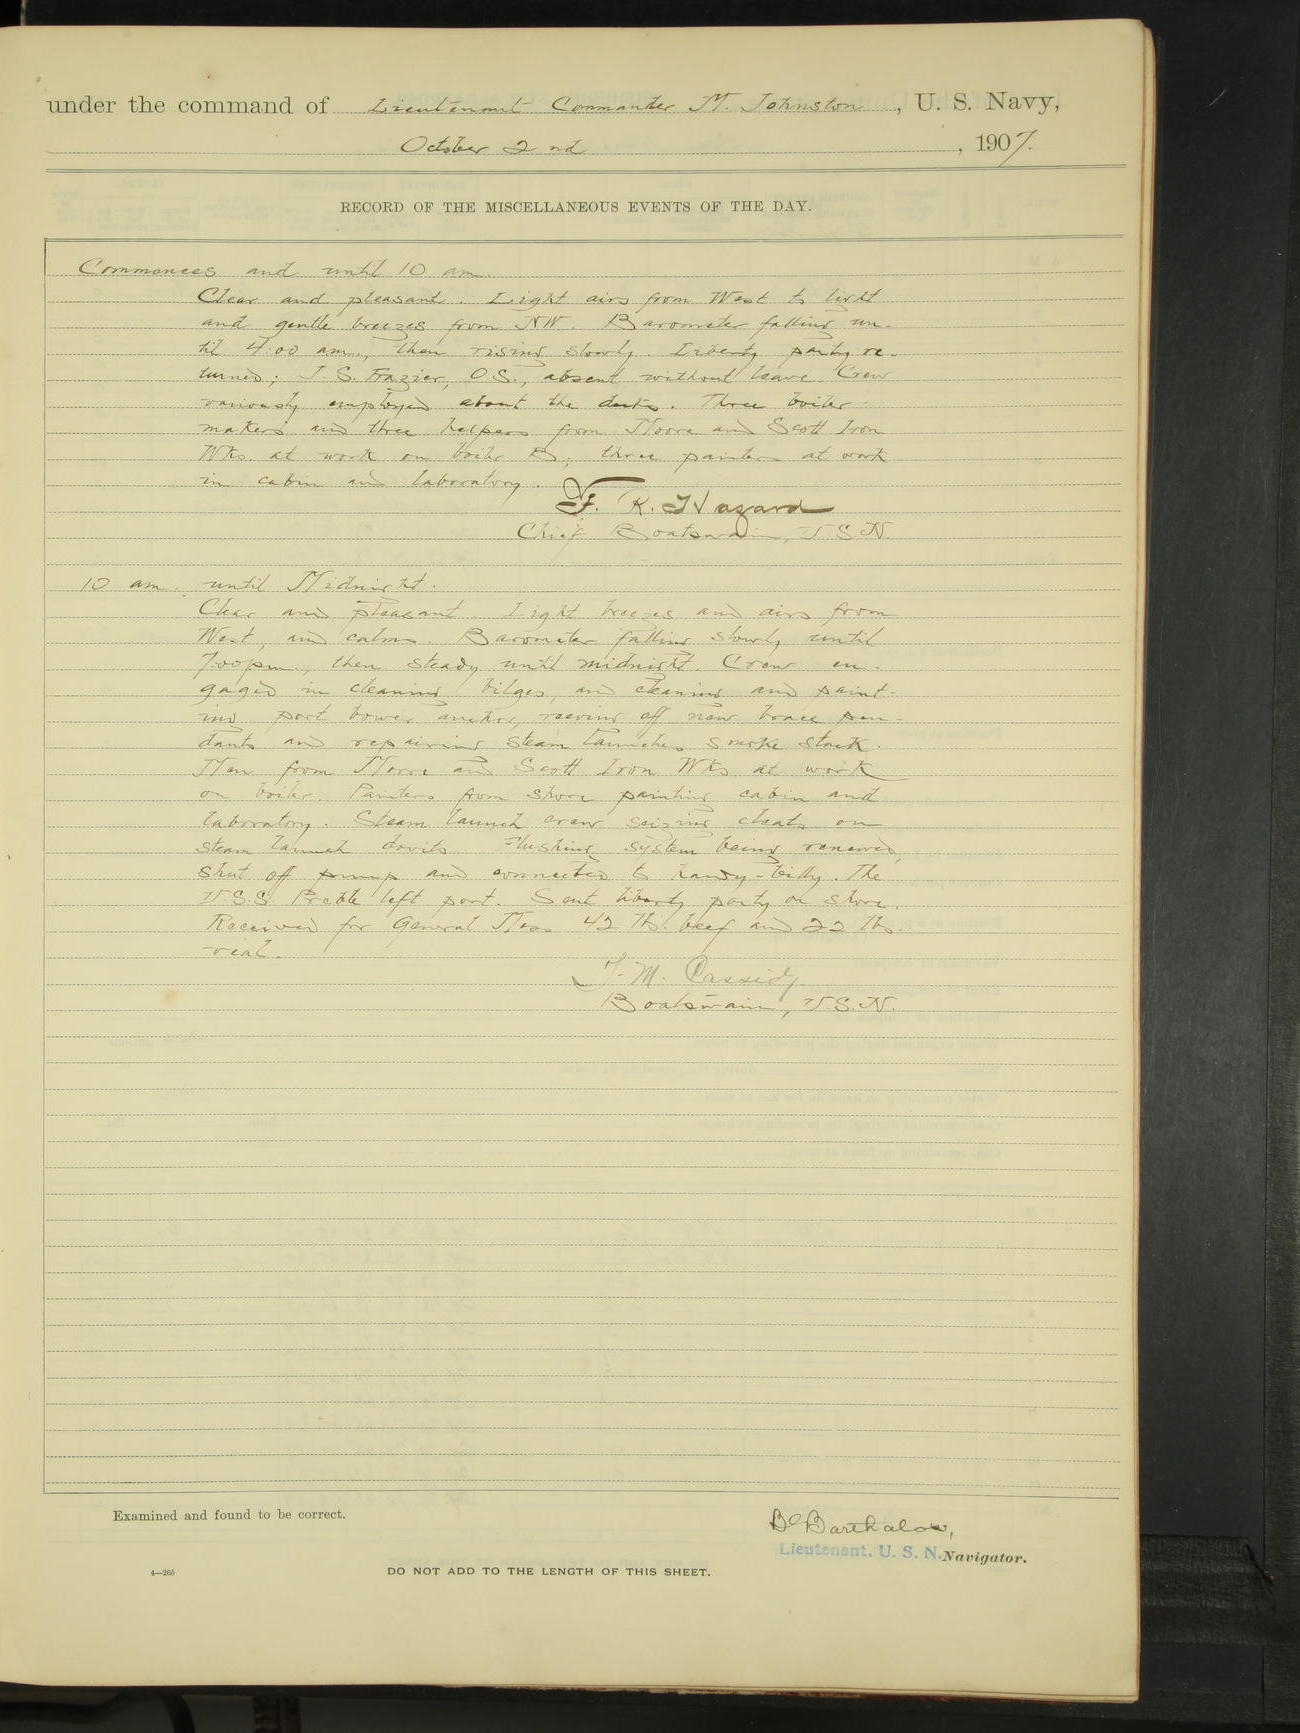 under the command of Lieutenant Commander M. Johnston, U. S. Navy,
October 2nd, 1907.
RECORD OF THE MISCELLANEOUS EVENTS OF THE DAY.
Commences and until 10 am.
Clear and pleasant. Light airs from West to light
and gentle breezes from NW. Barometer falling un-
til 4:00 am., then rising slowly. Liberty party re-
turned; J. S. Frazier, O.S., absent without leave. Crew
variously employed about the decks. Three boiler-
makers and three helpers from Moore and Scott Iron
Wks. at work on boiler B; three painters at work
in cabin and laboratory.
F. R. Hazard
Chief Boatswain, U.S.N.
10 am. until Midnight.
Clear and pleasant. Light breezes and airs from
West, and calms. Barometer falling slowly until
7:00 pm., then steady until midnight. Crew en-
gaged in cleaning bilges, and cleaning and paint-
ing port bower anchor, reeving off new brace pen-
dants and repairing steam launches smoke stack.
Men from Moore and Scott Iron Wks at work
on boiler. Painters from shore painting cabin and
laboratory. Steam launch crew seizing cleats on
steam launch davits. Flushing system being renewed,
shut off pump and connected to handy-billy. The
U.S.S. Preble left port. Sent liberty party on shore.
Received for General Mess 42 lbs. beef and 22 lbs.
veal.
J. M. Cassidy
Boatswain, U.S.N.
Examined and found to be correct.
Barthalow,
Lieutenant. U. S. N. Navigator.
4—265
DO NOT ADD TO THE LENGTH OF THIS SHEET.